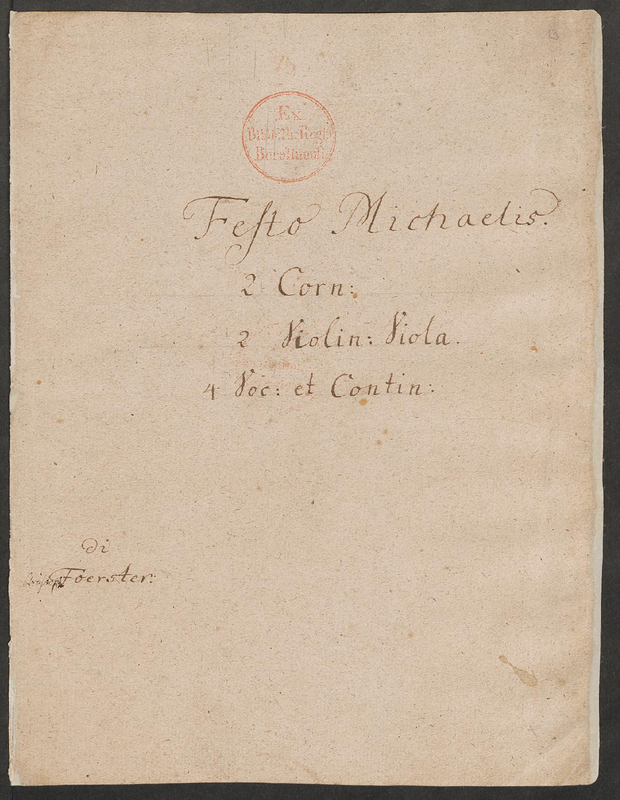 Ex
Biblioth. Regia
Berolinensi.
Festo Michaelis.
2 Corn:
2 Violin: Viola.
4 Voc: et Contin:
di
Foerster: